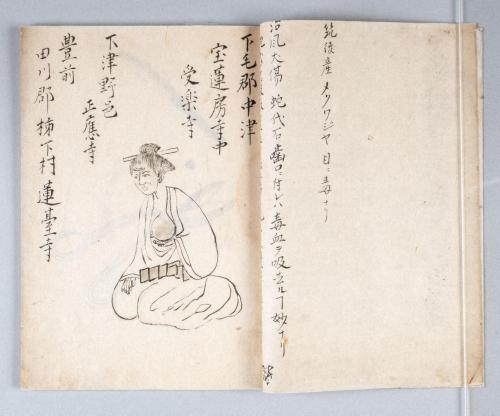 筑後産 メクワジヤ 目ニ毒ナリ
治風犬傷 蛇代石 歯口ニ付レハ毒血ヲ吸去ルコ妙ナリ
下毛郡中津
宝蓮房寺中
受楽寺
下津野邑
正應寺
豊前
田川郡 下村 蓮臺寺